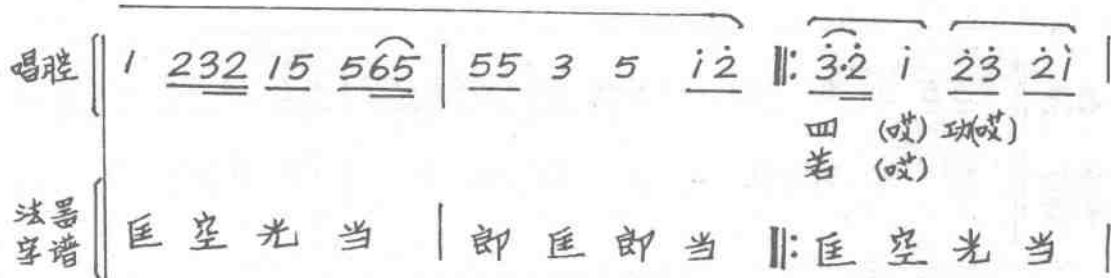 唱腔 1 232 15 565 | 55 3 5 i̇2̇ ‖: 3̇·2̇ i̇ 2̇3̇ 2̇i̇ |
四 (哎) 功(哎)
若 (哎)
法器字谱 匡 空 光 当 | 郎 匡 郎 当 ‖: 匡 空 光 当 |